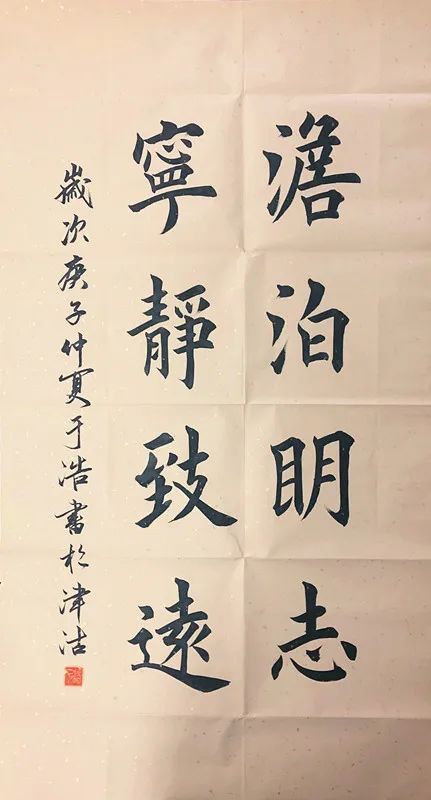 澹泊明志
寧靜致遠
歲次庚子仲夏于浩書於津沽